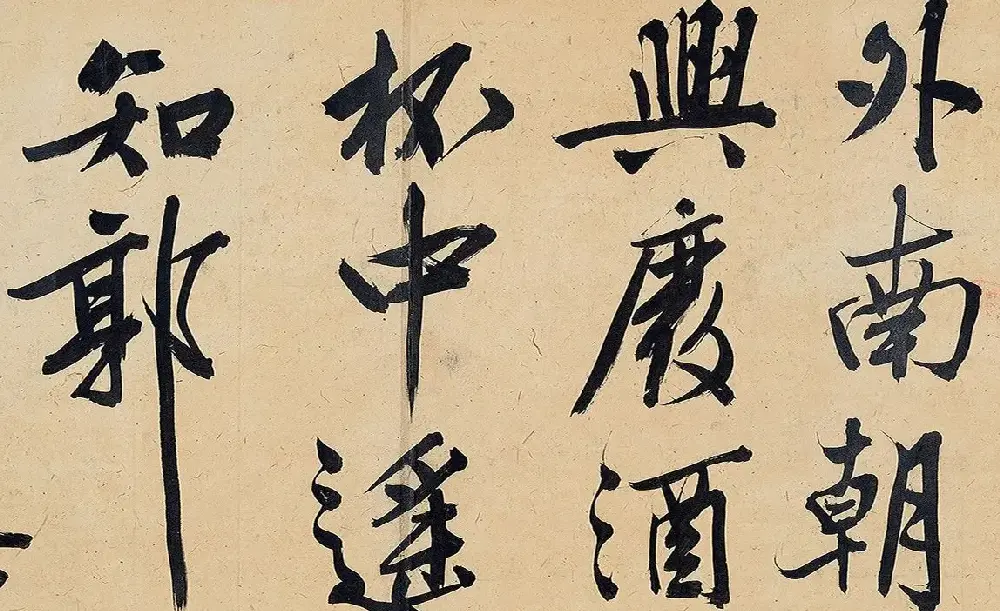 外南朝
興廢酒
杯中遙
知郭